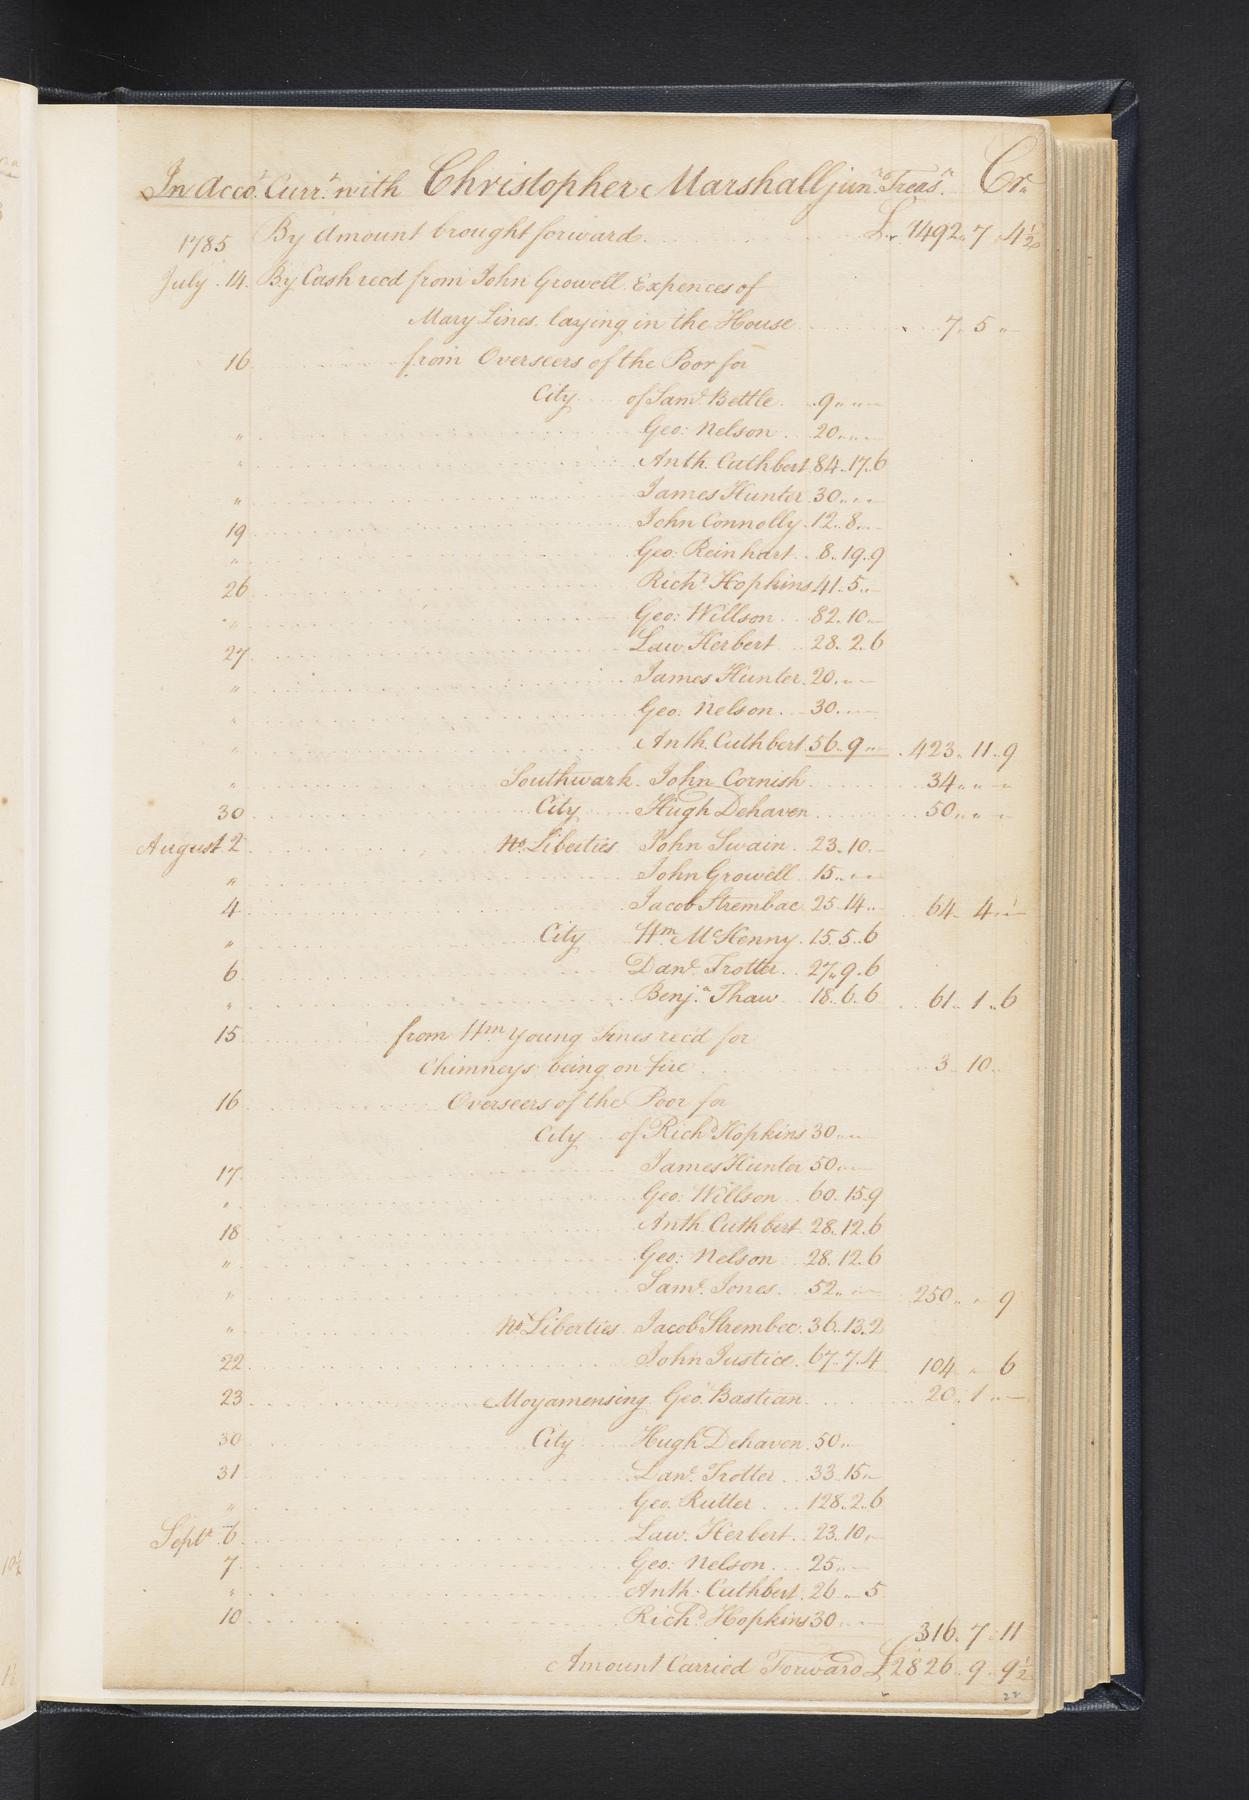 In Acco.t Curr.t with Christopher Marshall jun.r Treas.r Cr.
1785 By Amount brought forward £ 1492 7 4½
July 14 By Cash recd from John Growell Expences of
Mary Lines laying in the House 7 5 "
16 from Overseers of the Poor for
City of Saml. Bettle 9 " "
" Geo: Nelson 20 " "
" Anth. Cuthbert 84 17 6
" James Hunter 30 " "
19 John Connolly 12 8 "
" Geo: Reinhart 8 19 9
26 Richd. Hopkins 41 5 "
" Geo: Willson 82 10 "
27 Law. Herbert 28 2 6
" James Hunter 20 " "
" Geo: Nelson 30 " "
" Anth. Cuthbert 56 9 " 423 11 9
" Southwark John Cornish 34 " "
30 City Hugh Dehaven 50 " "
August 2 No. Liberties John Swain 23 10 "
" John Growell 15 " "
4 Jacob Strembac 25 14 " 64 4 "
" City Wm. McHenny 15 5 6
6 Danl. Trotter 27 9 6
" Benja. Shaw 18 6 6 61 1 6
15 from Wm Young fines rec'd for
Chimneys being on fire 3 10
16 Overseers of the Poor for
City of Richd Hopkins 30 " "
17 James Hunter 50 " "
" Geo: Willson 60 15 9
18 Anth. Cuthbert 28 12 6
" Geo: Nelson 28 12 6
" Saml. Jones 52 " " 250 " 9
" No. Liberties Jacob Strembec 36 13 2
22 John Justice 67 7 4 104 " 6
23 Moyamensing Geo. Bastian 20 1 "
30 City Hugh Dehaven 50 "
31 Danl. Trotter 33 15 "
" Geo. Rutter 128 2 6
Septr. 6 Law. Herbert 23 10 "
7 Geo: Nelson 25 "
" Anth. Cuthbert 26 " 5
10 Richd. Hopkins 30 " 316 7 11
Amount Carried Forward £ 2826 9 9½
22